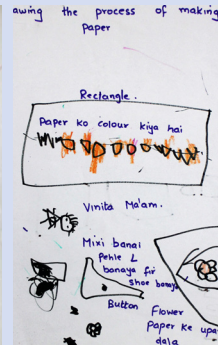 awing the process of making
Paper
Rectangle.
Paper ko colour kiya hai
Vinita Ma'am.
Mixi banai
Pehle L
banaya fir
shoe banaya
Button
Flower
Paper ke upa
dala